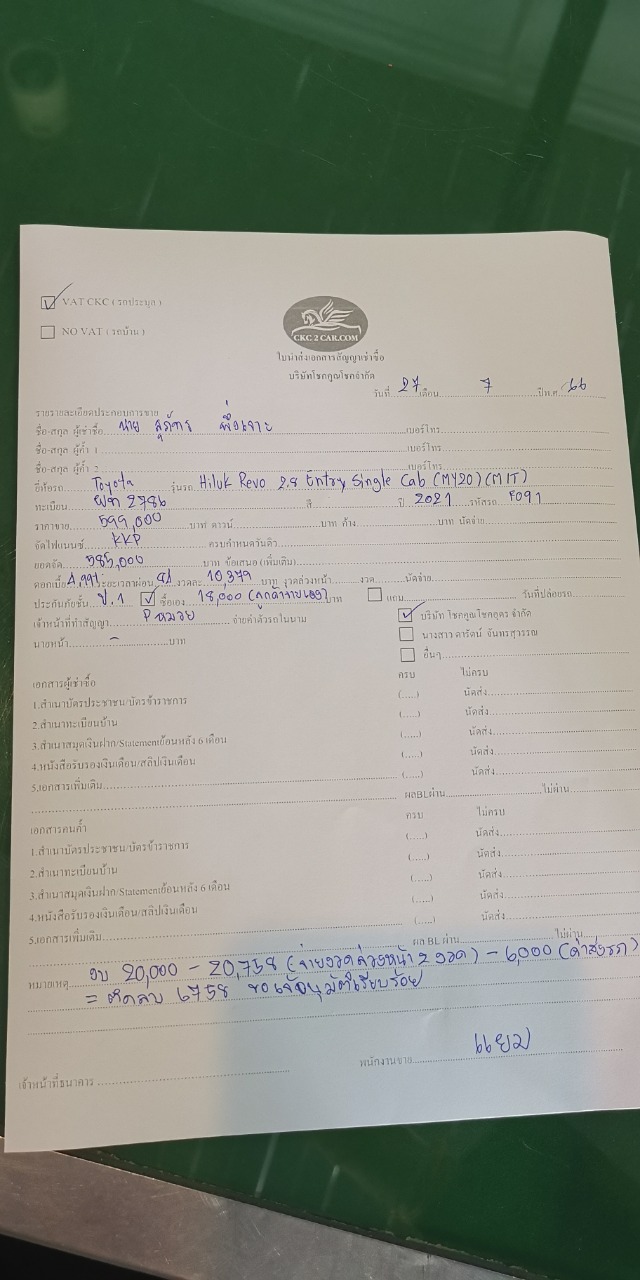 VAT CKC ( รถประมูล )
NO VAT ( รถบ้าน )
CKC 2 CAR.COM
ใบนำส่งเอกสารสัญญาเช่าซื้อ
บริษัทโชคคูณโชคจำกัด
วันที่ 27 เดือน 7 ปีพ.ศ. 66
รายรายละเอียดประกอบการขาย
ชื่อ-สกุล ผู้เช่าซื้อ นาย เบอร์โทร
ชื่อ-สกุล ผู้ค้ำ 1 เบอร์โทร
ชื่อ-สกุล ผู้ค้ำ 2 เบอร์โทร
ยี่ห้อรถ Toyota รุ่นรถ Hiluk Revo 2.8 Entry Single Cab (MY20) (MIT)
ทะเบียน 2786 สี ปี 2021 รหัสรถ F091
ราคาขาย 599,000 บาท ดาวน์ บาท ค้าง บาท นัดจ่าย
จัดไฟแนนซ์ KKP ครบกำหนดวันดิว
ยอดจัด 585,000 บาท ข้อเสนอ (เพิ่มเติม)
ดอกเบี้ย 4.99% ระยะเวลาผ่อน งวดละ 10,379 บาท งวดล่วงหน้า งวด นัดจ่าย
ประกันภัยชั้น ป.1 ซื้อเอง 18,000 (ลูกค้าจ่ายเอง) บาท แถม วันที่ปล่อยรถ
เจ้าหน้าที่ทำสัญญา P หมวย จ่ายค่าตัวรถในนาม บริษัท โชคคูณโชคยูคาร์ จำกัด
นายหน้า - บาท นางสาว ดารัตน์ จันทรสุวรรณ
อื่นๆ
เอกสารผู้เช่าซื้อ ครบ ไม่ครบ
1.สำเนาบัตรประชาชน/บัตรข้าราชการ (.....) นัดส่ง
2.สำเนาทะเบียนบ้าน (.....) นัดส่ง
3.สำเนาสมุดเงินฝาก/Statementย้อนหลัง 6 เดือน (.....) นัดส่ง
4.หนังสือรับรองเงินเดือน/สลิปเงินเดือน (.....) นัดส่ง
5.เอกสารเพิ่มเติม (.....) นัดส่ง
ผลBLผ่าน ไม่ผ่าน
เอกสารคนค้ำ ครบ ไม่ครบ
1.สำเนาบัตรประชาชน/บัตรข้าราชการ (.....) นัดส่ง
2.สำเนาทะเบียนบ้าน (.....) นัดส่ง
3.สำเนาสมุดเงินฝาก/Statementย้อนหลัง 6 เดือน (.....) นัดส่ง
4.หนังสือรับรองเงินเดือน/สลิปเงินเดือน (.....) นัดส่ง
5.เอกสารเพิ่มเติม (.....) นัดส่ง
ผล BL ผ่าน ไม่ผ่าน
หมายเหตุ งบ 20,000 - 20,758 (จ่ายงวดล่วงหน้า 2 งวด) - 6,000 (ค่าส่งรถ)
= ติดลบ 6758 ขอเจ้อนุมัติเรียบร้อย
พนักงานขาย แยม
เจ้าหน้าที่ธนาคาร